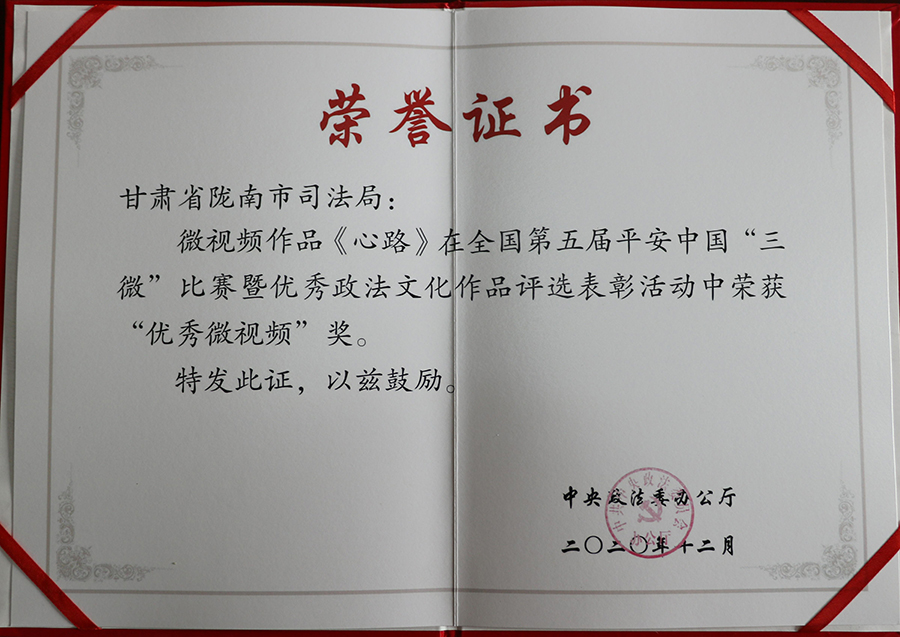 荣誉证书
甘肃省陇南市司法局：
微视频作品《心路》在全国第五届平安中国“三
微”比赛暨优秀政法文化作品评选表彰活动中荣获
“优秀微视频”奖。
特发此证，以兹鼓励。
中央政法委办公厅
二〇二〇年十二月
办公厅